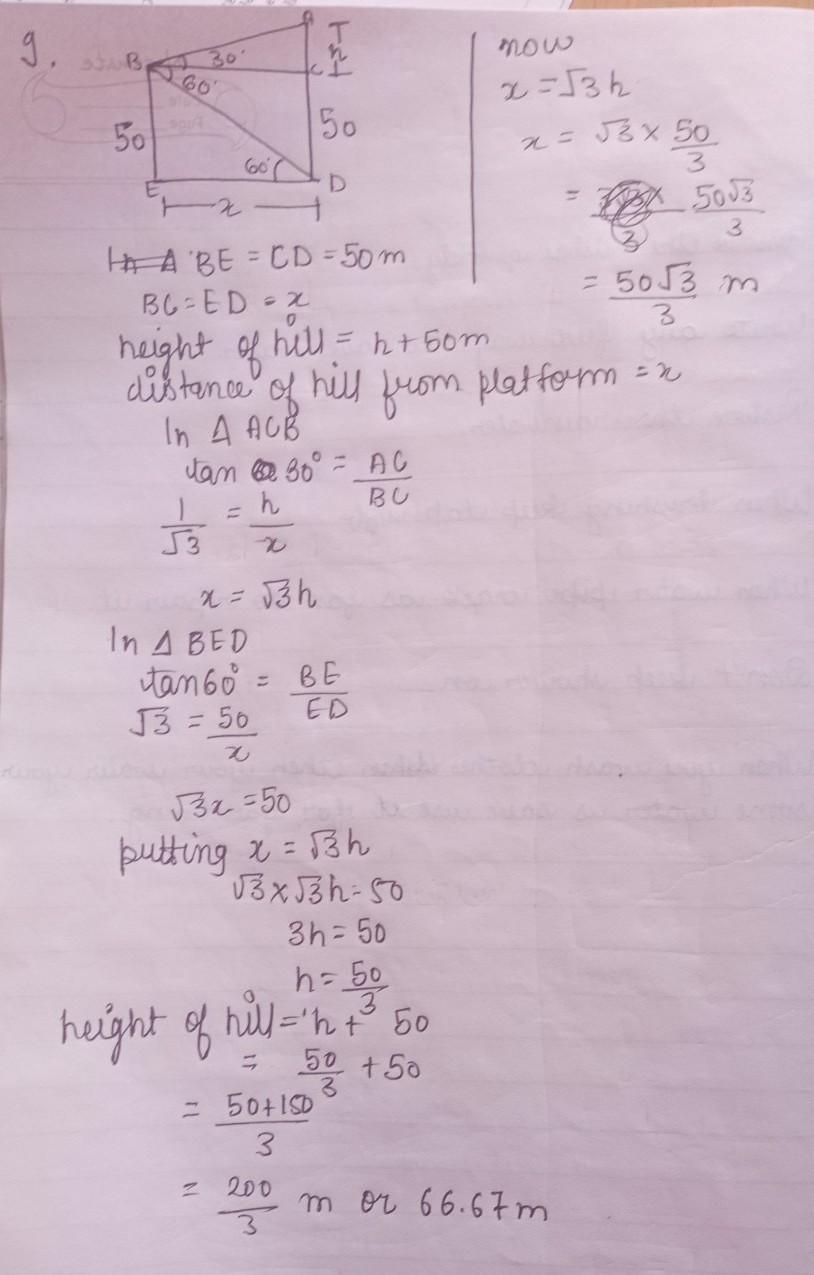 9.
A
B 30°
C
h
60°
50
50
60°
E
D
x
BE = CD = 50m
BC = ED = x
height of hill = h + 50m
distance of hill from platform = x
In Δ ACB
tan 30° = AC/BC
1/√3 = h/x
x = √3h
In Δ BED
tan60° = BE/ED
√3 = 50/x
√3x = 50
putting x = √3h
√3 × √3h = 50
3h = 50
h = 50/3
height of hill = h + 50
= 50/3 + 50
= 50+150/3
= 200/3 m or 66.67m
now
x = √3h
x = √3 × 50/3
= 50√3/3
= 50√3/3 m